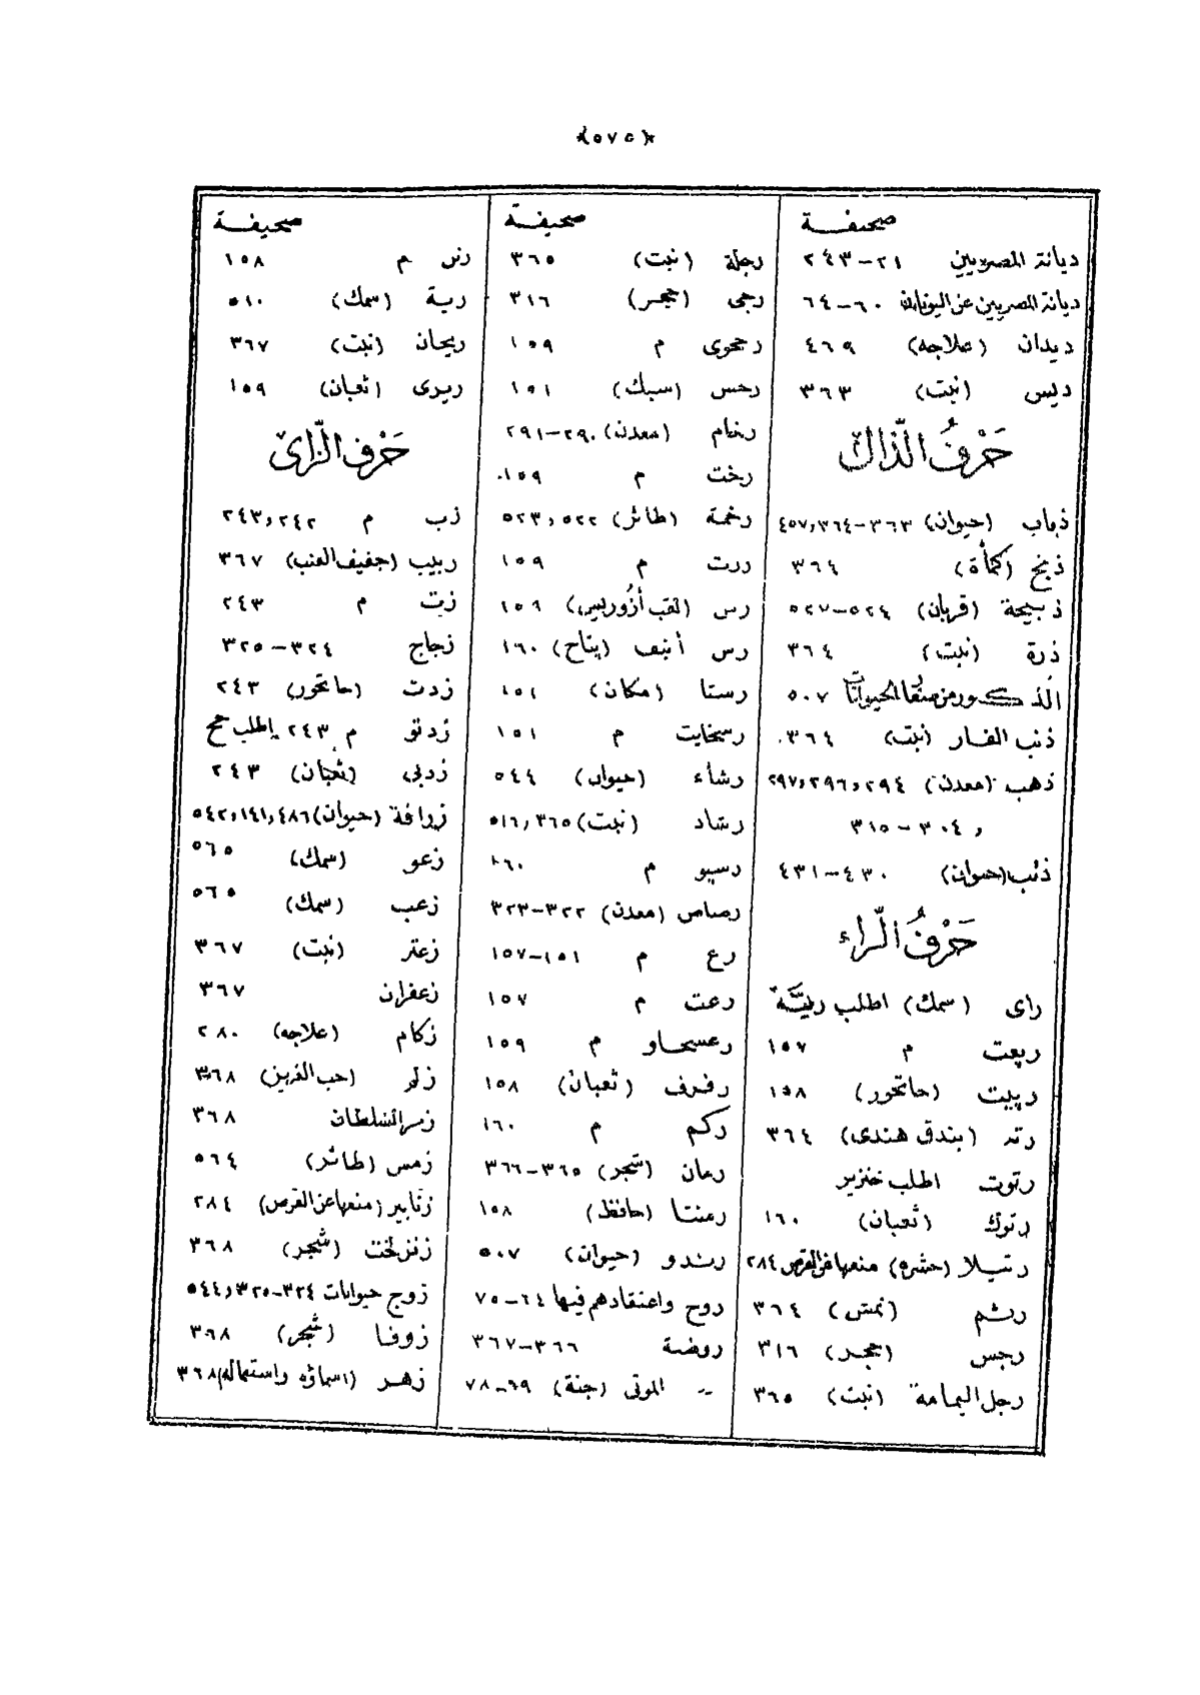 ﴿٥٧٥﴾
صحيفة
ديانة المصريين ٢١-٢٤٣
ديانة المصريين عن اليونان ٦٠-٦٤
ديدان (علاجه) ٤٦٩
ديس (نبت) ٣٦٣
حَرْفُ الّذال
ذباب (حيوان) ٣٦٣-٣٦٤،٤٥٧
ذبح (كمأة) ٣٦٤
ذبيحة (قربان) ٥٢٤-٥٢٧
ذرة (نبت) ٣٦٤
الذكور من الحيوانات ٥٠٧
ذنب الفار (نبت) ٣٦٤
ذهب (معدن) ٢٩٤،٢٩٦،٢٩٧
، ٣٠٤-٣١٥
ذئب (حيوان) ٤٣٠-٤٣١
حَرْفُ الّراء
راى (سمك) اطلب ريّة
ربعت م ١٥٧
ربيت (حاتحور) ١٥٨
رته (بندق هندى) ٣٦٤
رتوت اطلب خنزير
رتوك (ثعبان) ١٦٠
رتيلا (حشره) منعها عن القرص ٢٨٤
رثم (نمش) ٣٦٤
رجس (حجر) ٣١٦
رجل اليمامة (نبت) ٣٦٥
صحيفة
رجلة (نبت) ٣٦٥
رجى (حجر) ٣١٦
رححوى م ١٥٩
رحس (سبك) ١٥١
رخام (معدن) ٢٩٠-٢٩١
رخت م ١٥٩
رخمة (طائر) ٥٢٢،٥٢٣
ررت م ١٥٩
رس (لقب أزوريس) ١٥٩
رس أنبف (پتاح) ١٦٠
رستا (مكان) ١٥١
رسخايت م ١٥١
رشاء (حيوان) ٥٤٤
رشاد (نبت) ٣٦٥،٥١٦
رسيو م ١٦٠
رصاص (معدن) ٣٢٢-٣٢٣
رع م ١٥١-١٥٧
رعت م ١٥٧
رعسحاو م ١٥٩
رفرف (ثعبان) ١٥٨
ركم م ١٦٠
رمان (شجر) ٣٦٥-٣٦٦
رمنتا (حافظ) ١٥٨
رندو (حيوان) ٥٠٧
روح واعتقادهم فيها ٦٤-٧٥
روضة ٣٦٦-٣٦٧
-- الموتى (جنة) ٦٩-٧٨
صحيفة
رنس م ١٥٨
رية (سمك) ٥١٠
ريحان (نبت) ٣٦٧
ريرى (ثعبان) ١٥٩
حَرْف الّزاى
زب م ٢٤٢،٢٤٣
زبيب (جفيف العنب) ٣٦٧
زت م ٢٤٣
زجاج ٣٢٤-٣٢٥
زدت (حاتحور) ٢٤٣
زدتو م ٢٤٣ إطلب
زدبى (ثعبان) ٢٤٣
زرافة (حيوان) ٤٨٦،١٤١،٥٤٢
زعو (سمك) ٥٦٥
زعب (سمك) ٥٦٥
زعتر (نبت) ٣٦٧
زعفران ٣٦٧
زكام (علاجه) ٢٨٠
زلم (حب العزيز) ٣٦٨
زمر السلطان ٣٦٨
زمس (طائر) ٥٦٤
زنابير (منعها عن القرص) ٢٨٤
زنزلخت (شجر) ٣٦٨
زوج حيوانات ٣٢٤-٣٢٥،٥٤٤
زوفا (شجر) ٣٦٨
زهر (اسماؤه واستعماله) ٣٦٨